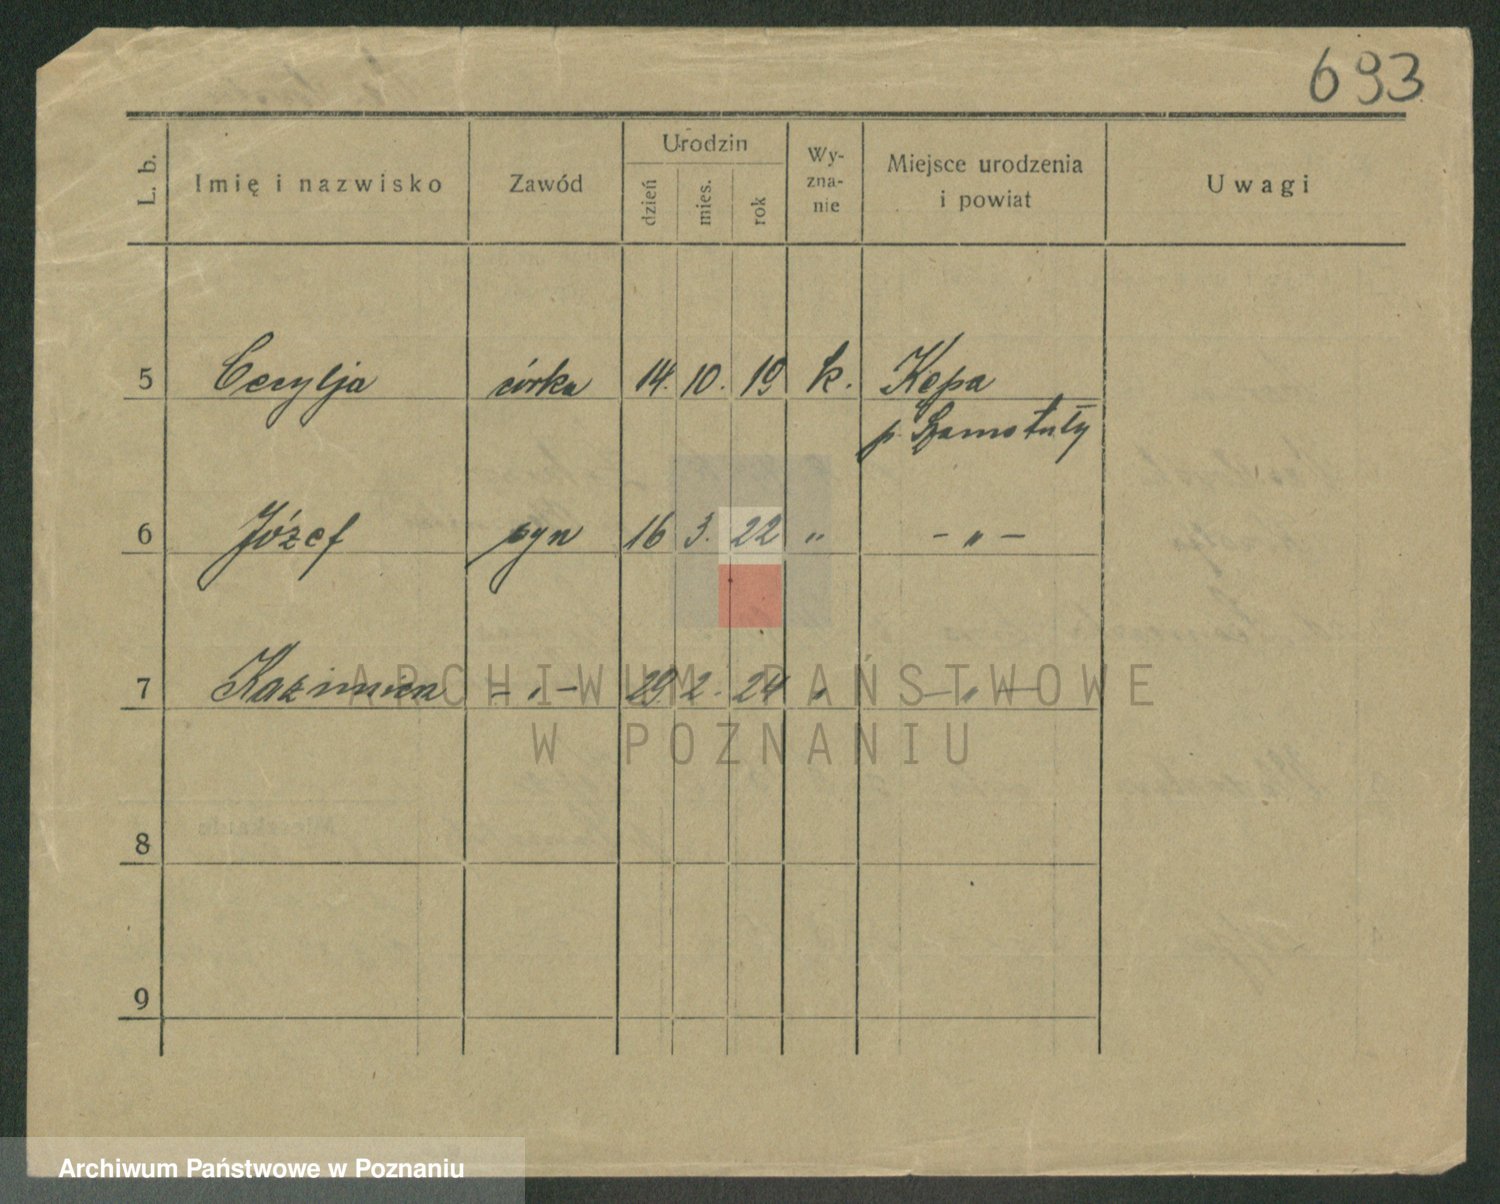 693
L. b. Imię i nazwisko Zawód Urodzin dzień mies. rok Wy-zna-nie Miejsce urodzenia i powiat Uwagi
5 Cecylja córka 14. 10. 19 k. Kępa
p. Szamotuły
6 Józef syn 16 3. 22 " - " -
7 Kazimierz - " - 29. 2. 24 " - " -
ARCHIWUM PAŃSTWOWE
W POZNANIU
8
9
Archiwum Państwowe w Poznaniu